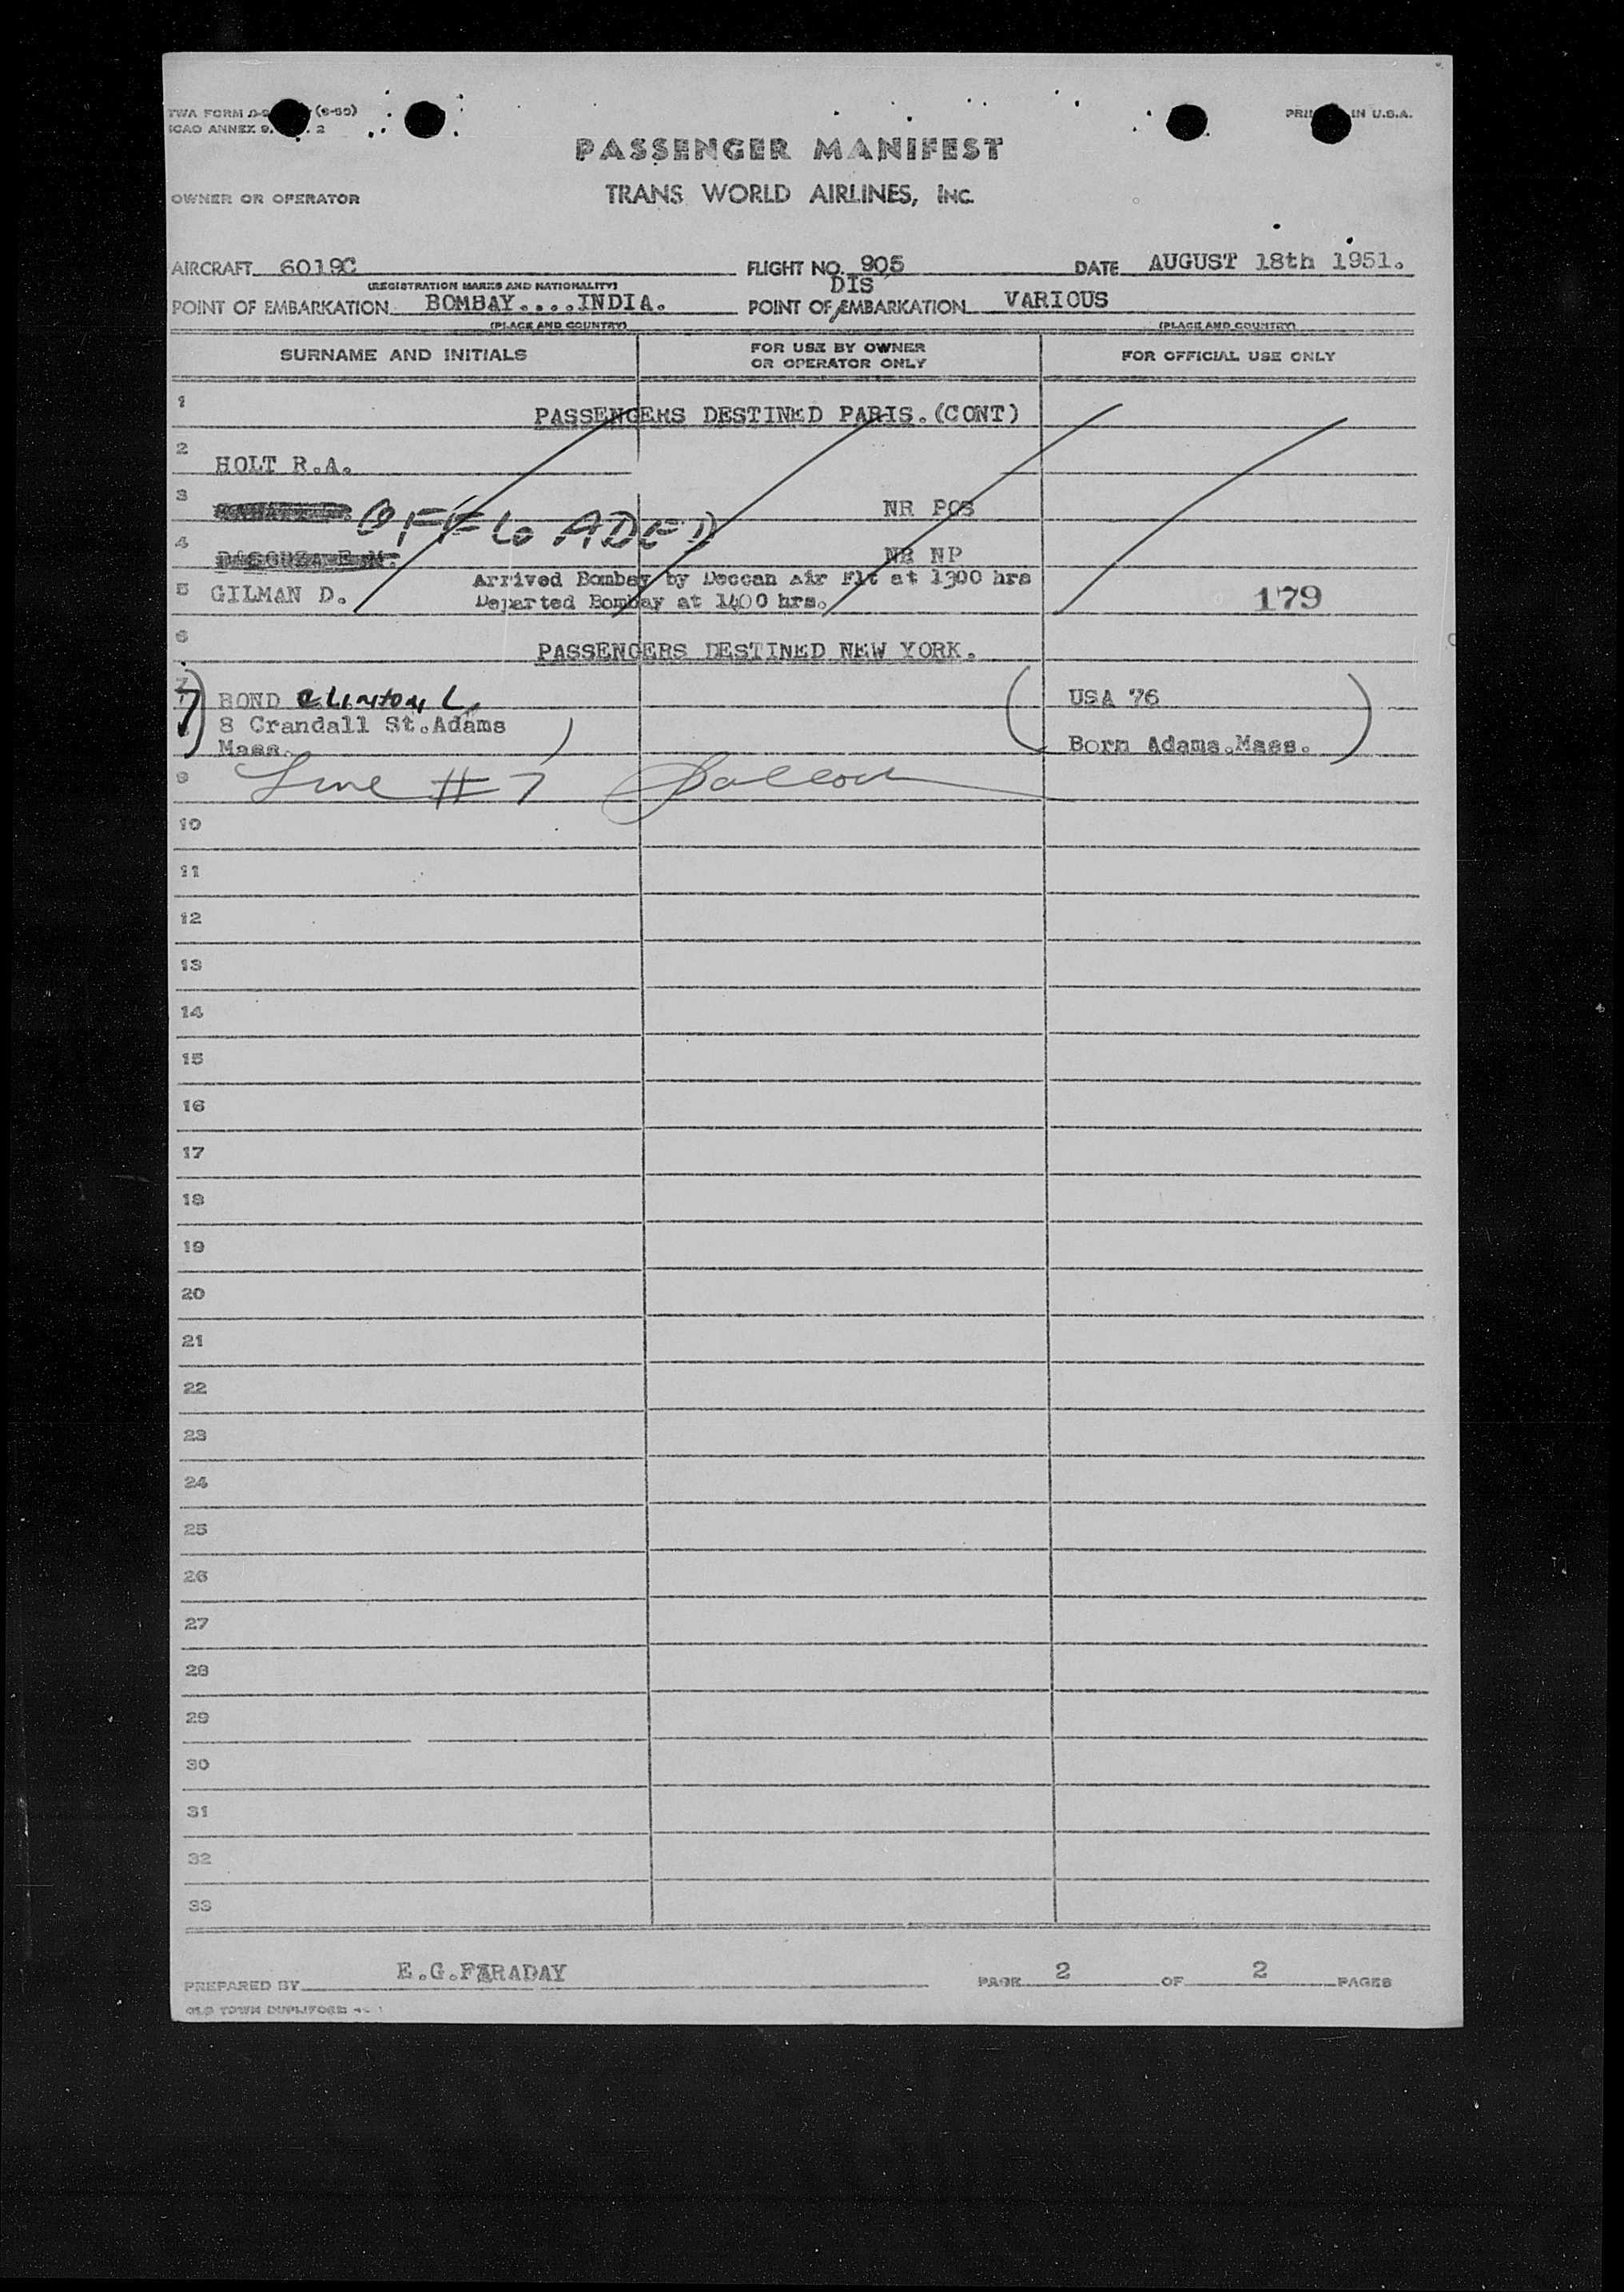 TWA FORM (6-50) PRI IN U.S.A.
ICAO ANNEX 9, 2
PASSENGER MANIFEST
OWNER OR OPERATOR TRANS WORLD AIRLINES, INC.
AIRCRAFT 6019C FLIGHT NO. 905 DATE AUGUST 18th 1951.
(REGISTRATION MARKS AND NATIONALITY) DIS
POINT OF EMBARKATION BOMBAY....INDIA. POINT OF EMBARKATION VARIOUS
(PLACE AND COUNTRY) (PLACE AND COUNTRY)
SURNAME AND INITIALS FOR USE BY OWNER OR OPERATOR ONLY FOR OFFICIAL USE ONLY
1 PASSENGERS DESTINED PARIS.(CONT)
2 HOLT R.A.
3 OFFLOADED NR POS
4 NR NP
Arrived Bombay by Deccan Air Flt at 1300 hrs
5 GILMAN D. Departed Bombay at 1400 hrs. 179
6 PASSENGERS DESTINED NEW YORK.
7 BOND CLINTON L. USA 76
8 Crandall St.Adams
Mass. Born Adams.Mass.
9 Line # 7
10
11
12
13
14
15
16
17
18
19
20
21
22
23
24
25
26
27
28
29
30
31
32
33
PREPARED BY E.G.FARADAY PAGE 2 OF 2 PAGES
OLD TOWN DUPLIFORM